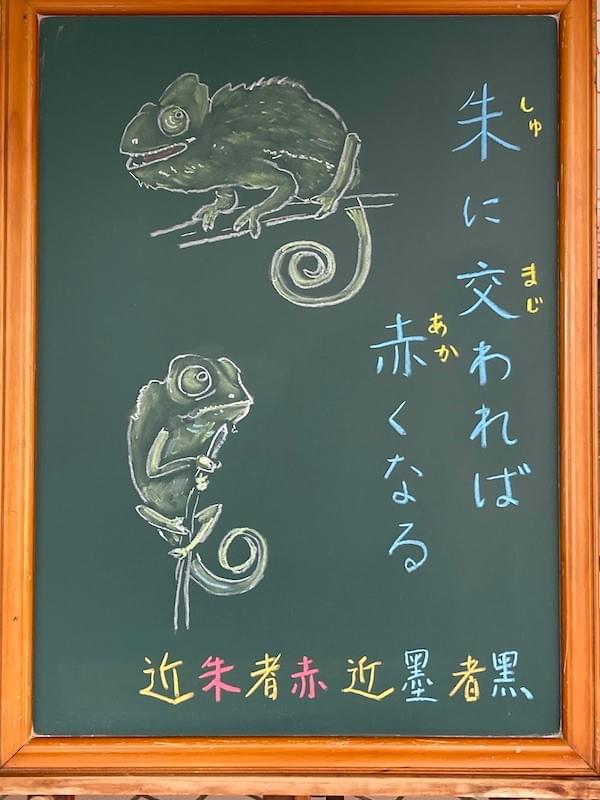 朱に交われば
しゅ
まじ
赤くなる
あか
近朱者赤 近墨者黒